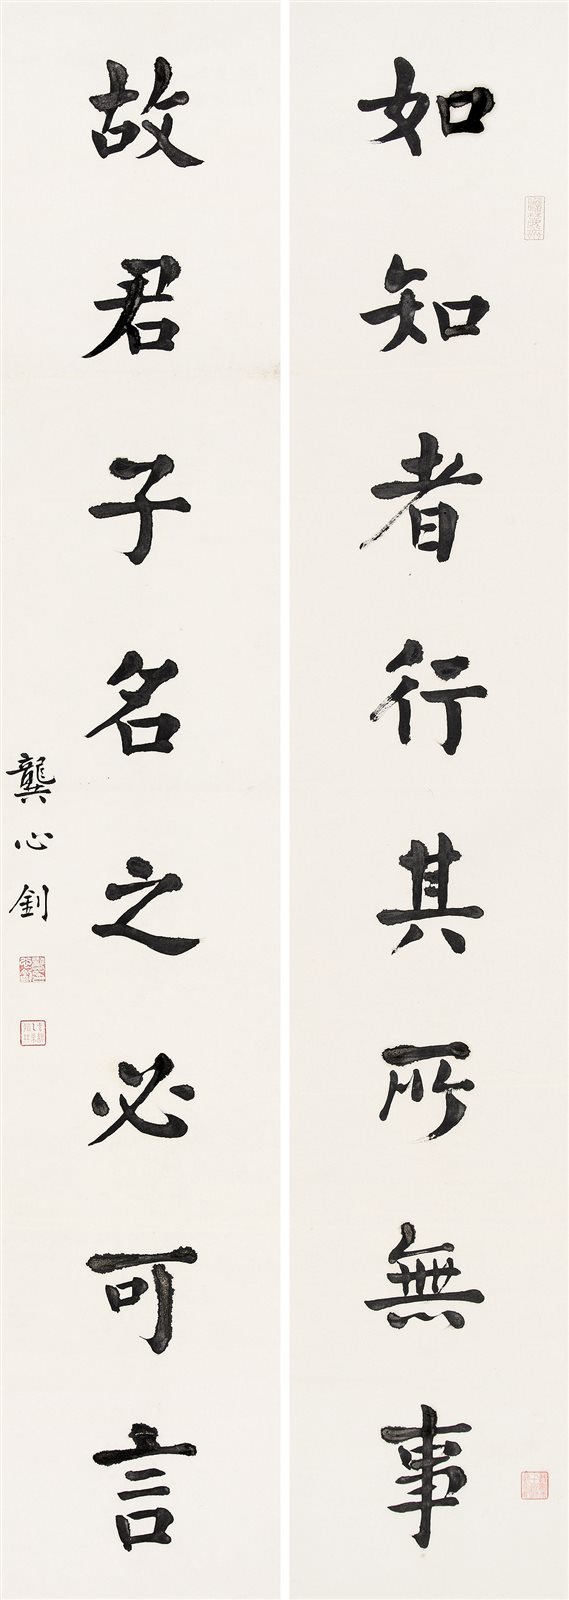 如知者行其所無事
故君子名之必可言
龔心釗